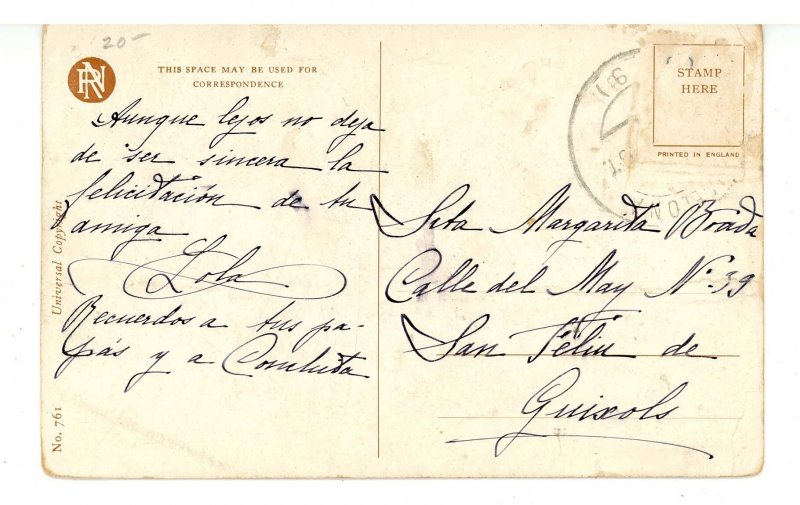 20-
RN
THIS SPACE MAY BE USED FOR
CORRESPONDENCE
Aunque lejos no deja
de ser sincera la
felicitación de tu
amiga
Lola
Recuerdos a tus pa-
pás y a Conchita
Universal Copyright
No. 761
STAMP
HERE
PRINTED IN ENGLAND
Srta Margarita Boada
Calle del May Nº 39
San Féliu de
Guixols